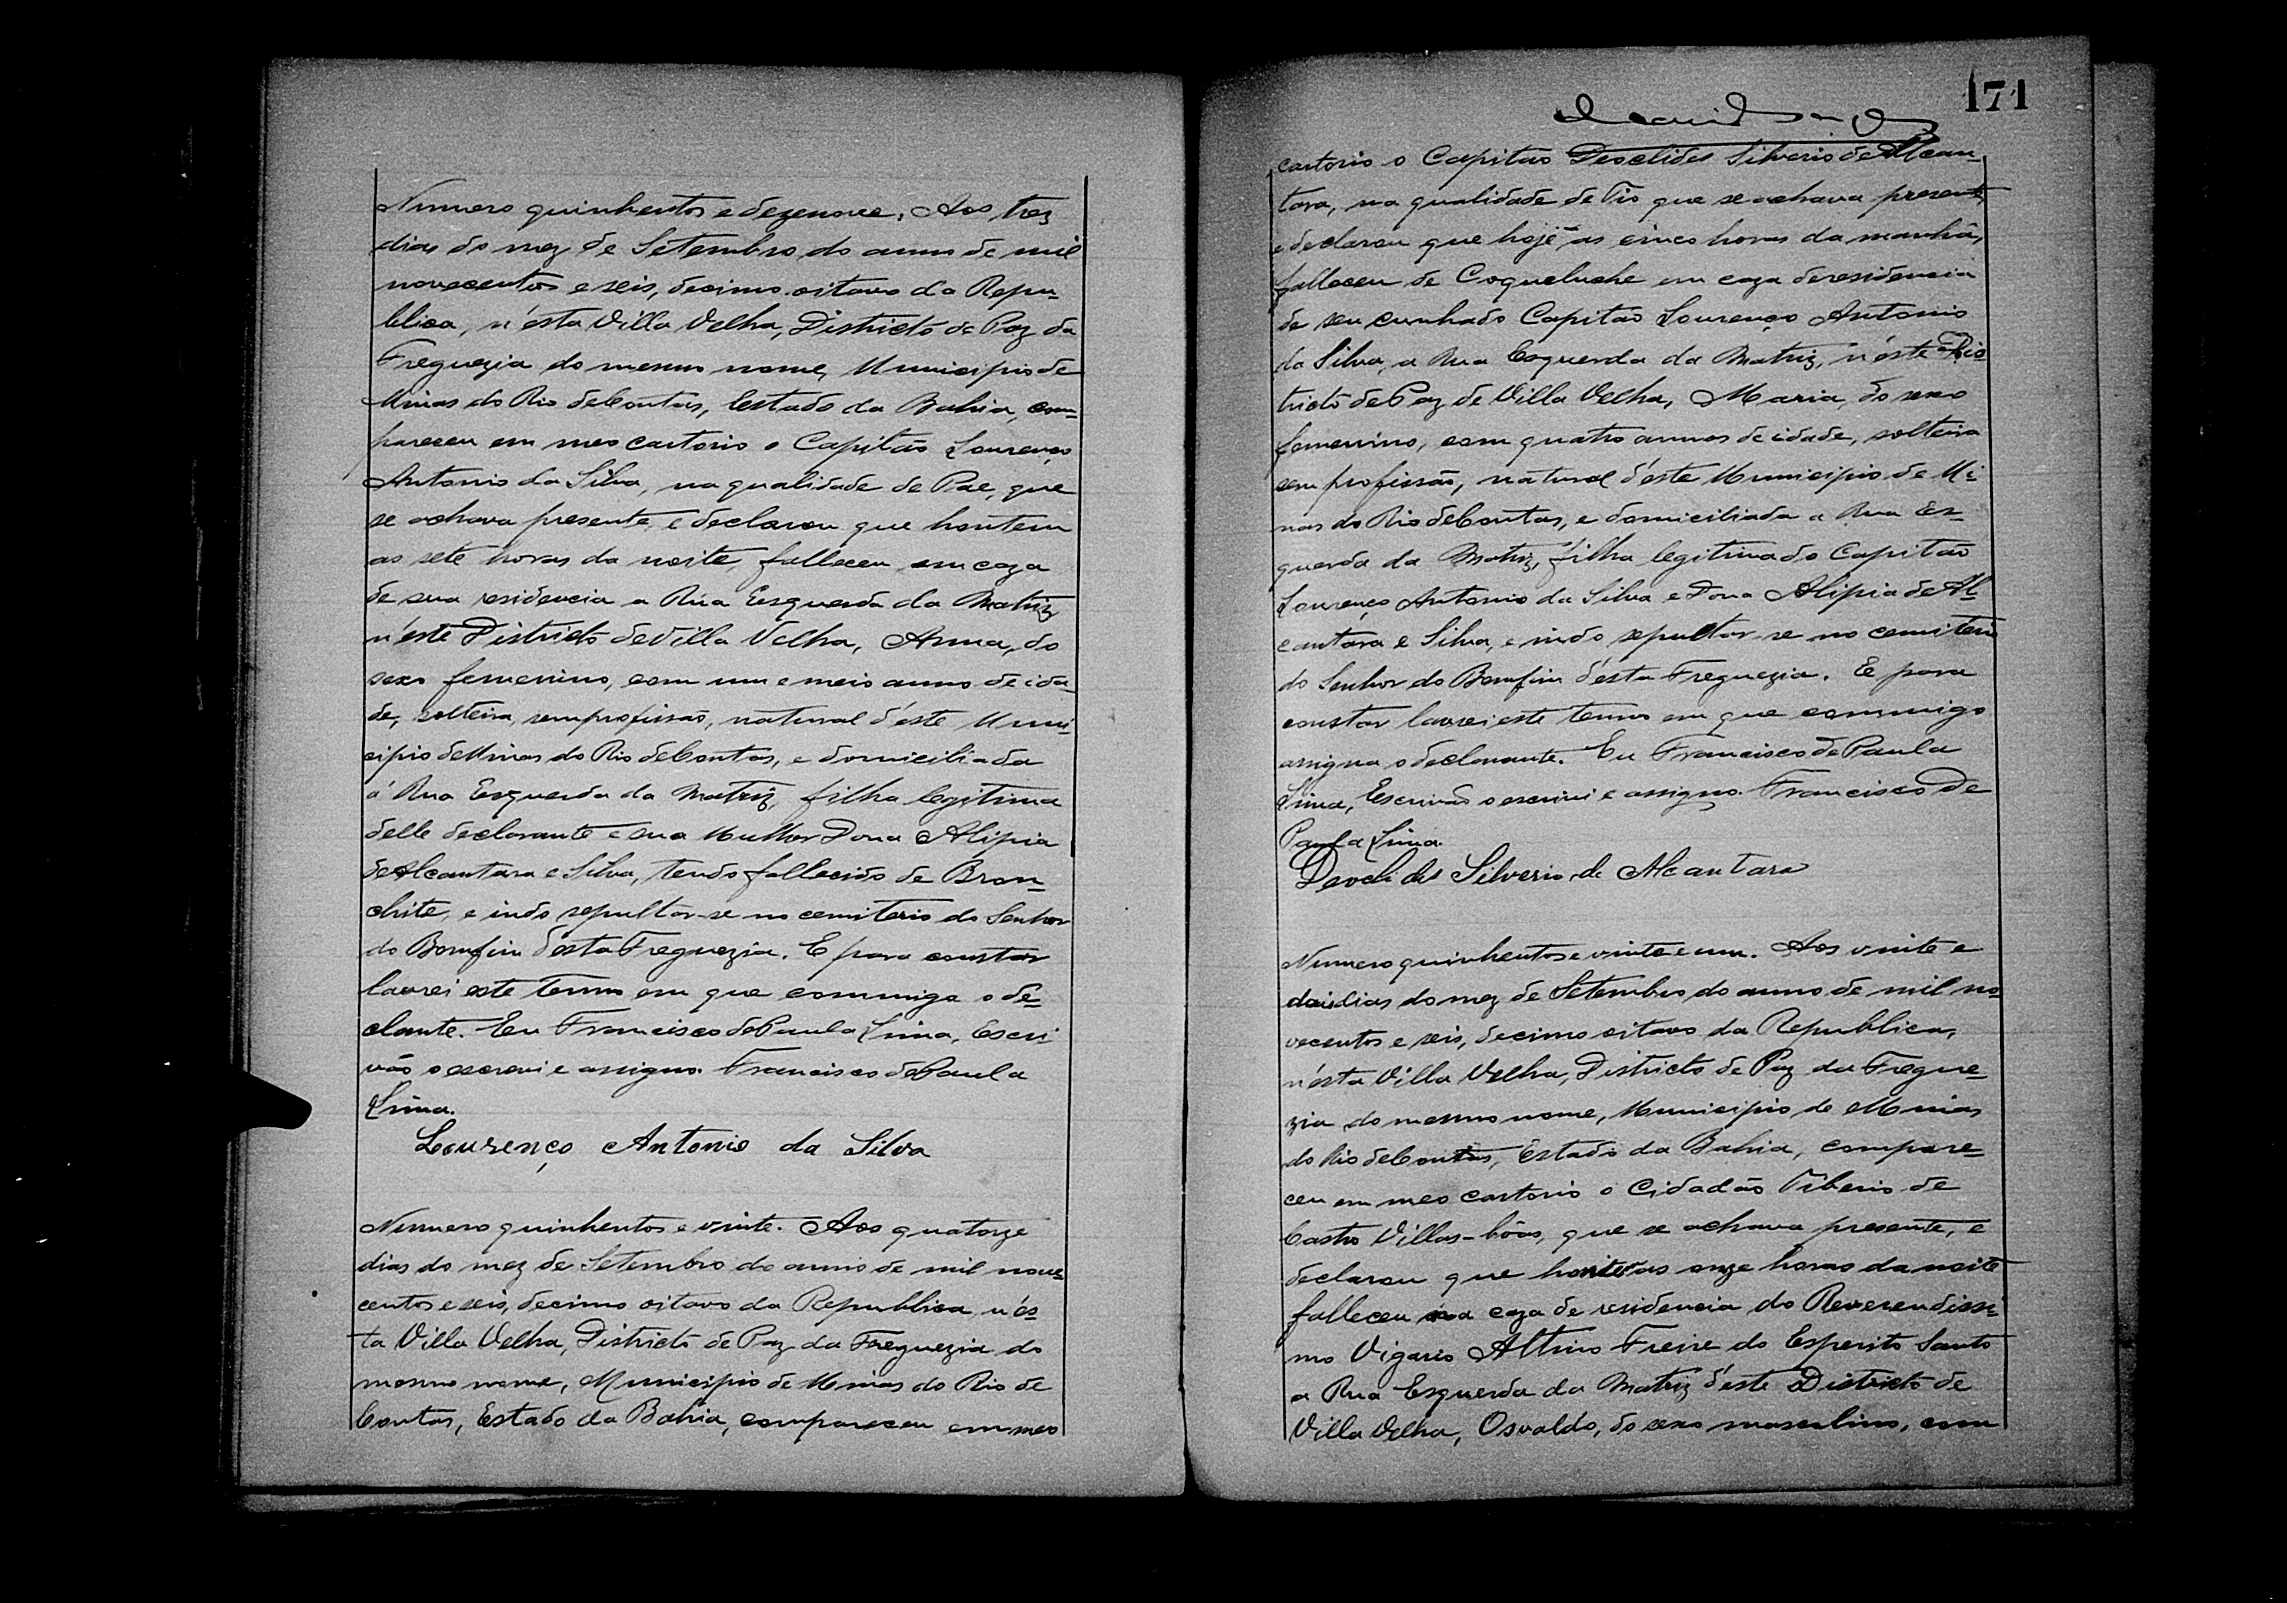 Numero quinhentos e dezenove. Aos trez
dias do mez de Setembro do anno de mil
novecentos e seis, decimo oitavo da Repu-
blica, n'esta Villa Velha, Districto de Paz da
Freguezia do mesmo nome, Municipio de
Minas do Rio de Contas, Estado da Bahia, com-
pareceu em meo cartorio o Capitão Lourenço
Antonio da Silva, na qualidade de Pae, que
se achava presente, e declarou que hontem
as sete horas da noite, falleceu em caza
de sua residencia a Rua Esquerda da Matriz
n'este Districto de Villa Velha, Anna, do
sexo femenino, com um e meio anno de ida-
de, solteira, sem profissão, natural d'este Muni-
cipio de Minas do Rio de Contas, e domiciliada
á Rua Esquerda da Matriz, filha legitima
delle declarante e sua Mulher Dona Alipia
de Alcantara e Silva, tendo fallecido de Bron-
chite, e indo sepultar-se no cemiterio do Senhor
do Bomfim d'esta Freguezia. E para constar
lavrei este termo em que commigo o de-
clante. Eu Francisco de Paula Lima, Escri-
vão o escrevi e assigno. Francisco de Paula
Lima.
Lourenço Antonio da Silva
Numero quinhentos e vinte. Aos quatorze
dias do mez de Setembro do anno de mil nove-
centos e seis, decimo oitavo da Republica, n'es-
ta Villa Velha, Districto de Paz da Freguezia do
mesmo nome, Municipio de Minas do Rio de
Contas, Estado da Bahia, compareceu em meo
171
cartorio o Capitão Deoclides Silverio de Alcan-
tara, na qualidade de Tio que se achava presente,
e declarou que hoje as cinco horas da manhã,
falleceu de Coqueluche em caza de residencia
de seu cunhado Capitão Lourenço Antonio
da Silva, a Rua Esquerda da Matriz, n'este Dis-
tricto de Paz de Villa Velha, Maria, do sexo
femenino, com quatro annos de idade, solteira
sem profissão, natural d'este Municipio de Mi-
nas do Rio de Contas, e domiciliada a Rua Es-
querda da Matriz, filha legitima do Capitão
Lourenço Antonio da Silva e Dona Alipia de Al-
cantara e Silva, e indo sepultar-se no cemiterio
do Senhor do Bomfim d'esta Freguezia. E para
constar lavrei este termo em que commigo
assigna o declarante. Eu Francisco de Paula
Lima, Escrivão o escrevi e assigno. Francisco de
Paula Lima.
Deoclides Silverio de Alcantara
Numero quinhentos e vinte e um. Aos vinte e
dois dias do mez de Setembro do anno de mil no-
vecentos e seis, decimo oitavo da Republica,
n'esta Villa Velha, Districto de Paz da Fregue-
zia do mesmo nome, Municipio de Minas
do Rio de Contas, Estado da Bahia, compare-
ceu em meo cartorio o Cidadão Tiberio de
Castro Villas-bôas, que se achava presente, e
declarou que hontem as onze horas da noite
falleceu na caza de residencia do Reverendissi-
mo Vigario Altino Freire do Esperito Santo
a Rua Esquerda da Matriz d'este Districto de
Villa Velha, Osvaldo, do sexo masculino, com